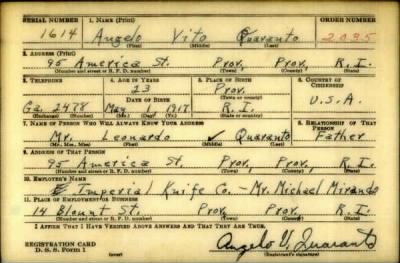 SERIAL NUMBER 1. NAME (Print) ORDER NUMBER
1614 Angelo Vito Quaranto 2095
(First) (Middle) (Last)
2. ADDRESS (Print)
95 America St. Prov. Prov. R. I.
(Number and street or R. F. D. number) (Town) (County) (State)
3. TELEPHONE 4. AGE IN YEARS 5. PLACE OF BIRTH 6. COUNTRY OF CITIZENSHIP
23 Prov.
DATE OF BIRTH (Town or county)
Ga. 2478 May 1 1917 R. I. U. S. A.
(Exchange) (Number) (Mo.) (Day) (Yr.) (State or country)
7. NAME OF PERSON WHO WILL ALWAYS KNOW YOUR ADDRESS 8. RELATIONSHIP OF THAT PERSON
Mr. Leonardo ✓ Quaranto Father
(Mr., Mrs., Miss) (First) (Middle) (Last)
9. ADDRESS OF THAT PERSON
95 America St. Prov. Prov. R. I.
(Number and street or R. F. D. number) (Town) (County) (State)
10. EMPLOYER'S NAME
Imperial Knife Co. - Mr. Michael Mirando
11. PLACE OF EMPLOYMENT OR BUSINESS
14 Blount St. Prov. Prov. R. I.
(Number and street or R. F. D. number) (Town) (County) (State)
I AFFIRM THAT I HAVE VERIFIED ABOVE ANSWERS AND THAT THEY ARE TRUE.
REGISTRATION CARD
D. S. S. Form 1 (over) Angelo V. Quaranto
(Registrant's signature)